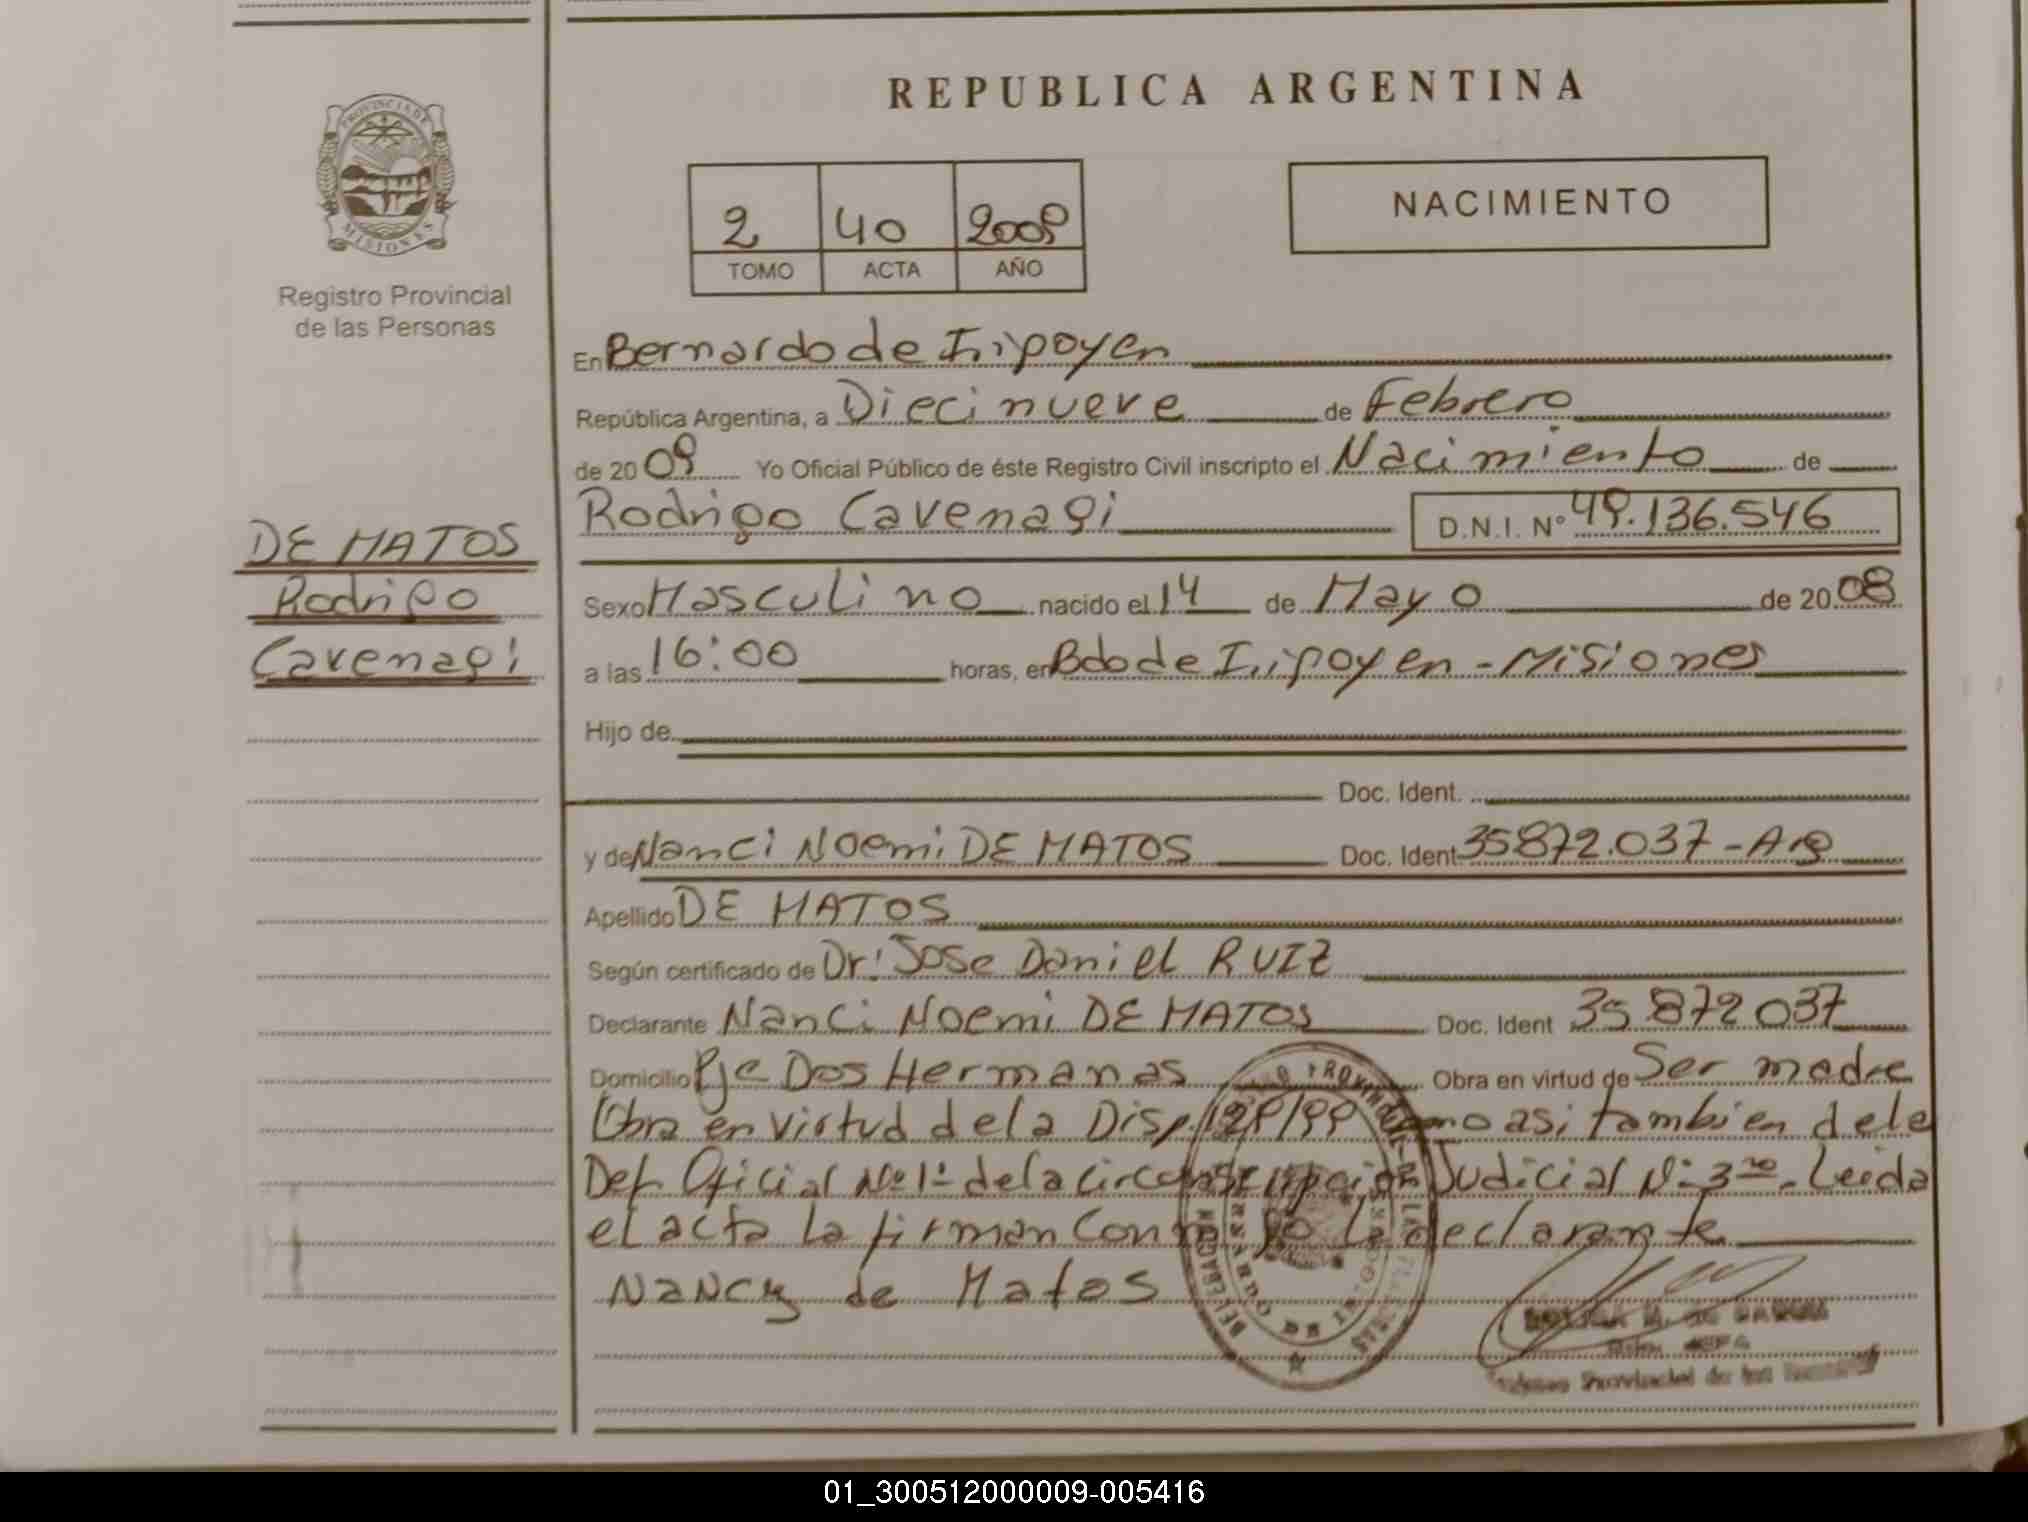 REPUBLICA ARGENTINA
PROVINCIA DE MISIONES
Registro Provincial
de las Personas
2 40 2009
TOMO ACTA AÑO
NACIMIENTO
En Bernardo de Irigoyen
República Argentina, a Diecinueve de Febrero
de 2009 Yo Oficial Público de éste Registro Civil inscripto el Nacimiento de
Rodrigo Cavenagi D.N.I. Nº 49.136.546
DE MATOS
Rodrigo
Cavenagi
Sexo Masculino nacido el 14 de Mayo de 2008
a las 16:00 horas, en Bdo de Irigoyen - Misiones
Hijo de
Doc. Ident.
y de Nanci Noemi DE MATOS Doc. Ident 35872.037 - Arg
Apellido DE MATOS
Según certificado de Dr: Jose Daniel RUIZ
Declarante Nanci Noemi DE MATOS Doc. Ident 35 872 037
Domicilio Pje Dos Hermanas Obra en virtud de Ser madre
Obra en virtud de la Disp. 129/99 como asi tambien de le
Def. Oficial Nº 1º de la circunscripcion Judicial Nº 3ra. Leida
el acta la firman conmigo la declarante
Nancy de Matos
01_300512000009-005416